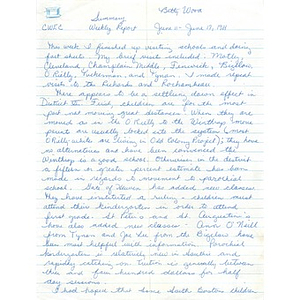 Betty Wova
Summary
CWEC Weekly Report June 5 - June 13, 1981
This week I finished up visiting schools and doing
fact sheets. My brief visit included: Motley,
Cleveland, Champlain Middle, Fenwick, Bigelow
O'Reilly, Tuckerman, and Tynan. I made repeat
visits to the Richards and Rochambeau.
There appears to be a settling down effect in
District Six. First, children are for the most
part not moving great distances. When they are
moved as in the O'Reilly to the Winthrop move
parents are usually locked into the system (most
O'Reilly whites are living in Old Colony Project); they have
no alternatives and have been convinced the
Winthrop is a good school. Otherwise in the district
a fifteen or greater percent attrition has been
made in regards to movement to parochial
school. Gate of Heaven has added new classes.
They have instituted a ruling - children must
attend their kindergarten in order to attend
first grade. St Peter's and St. Augustine's
have also added new classes. Ann O'Neill
from Tynan and Joe Lee from the Bigelow have
been most helpful with information. Parochial
kindergarten is relatively new in Boston and
rapidly catching on. Tuition is generally between
three and four hundred dollars for half
day sessions.
I had hoped that some South Boston children